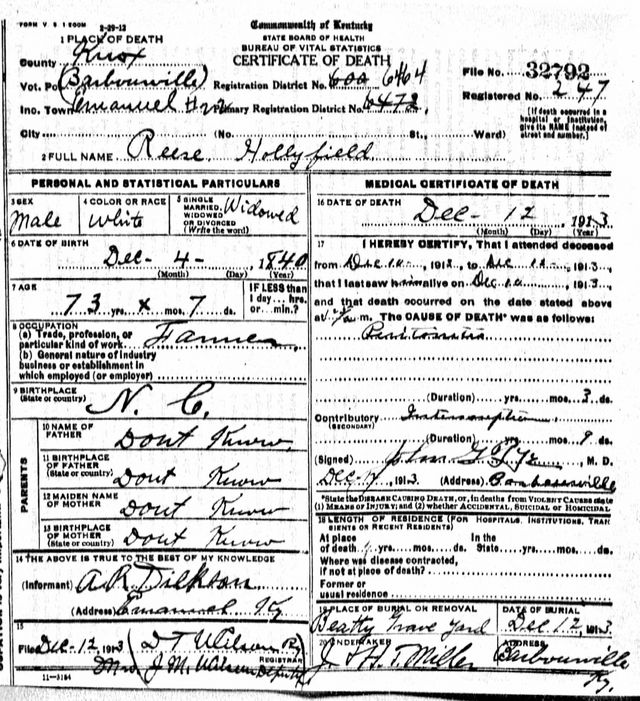 FORM V. S. 1 100M 2-29-12
Commonwealth of Kentucky
STATE BOARD OF HEALTH
BUREAU OF VITAL STATISTICS
CERTIFICATE OF DEATH
1 PLACE OF DEATH
County Knox
Vot. Pct (Barbourville) Registration District No. 600 6464
Inc. Town Emanuel Primary Registration District No. 6472
File No. 32792
Registered No. 247
City (No. St., Ward)
(If death occurred in a hospital or institution, give its NAME instead of street and number.)
2 FULL NAME Reese Hollyfield
PERSONAL AND STATISTICAL PARTICULARS
3 SEX Male
4 COLOR OR RACE White
5 SINGLE MARRIED, WIDOWED OR DIVORCED (Write the word) Widowed
6 DATE OF BIRTH
Dec - 4 - 1840
(Month) (Day) (Year)
7 AGE
73 yrs. x mos. 7 ds.
IF LESS than 1 day... hrs. or min.?
8 OCCUPATION
(a) Trade, profession, or particular kind of work Farmer
(b) General nature of industry
business or establishment in
which employed (or employer)
9 BIRTHPLACE
(State or country) N. C.
PARENTS
10 NAME OF FATHER Dont Know
11 BIRTHPLACE OF FATHER (State or country) Dont Know
12 MAIDEN NAME OF MOTHER Dont Know
13 BIRTHPLACE OF MOTHER (State or country) Dont Know
14 THE ABOVE IS TRUE TO THE BEST OF MY KNOWLEDGE
(Informant) A. R. Dickson
(Address) Emanuel Ky
15
Filed Dec-12 1913 D T Wilson
Mrs J M Wilson Deputy REGISTRAR
11-3184
MEDICAL CERTIFICATE OF DEATH
16 DATE OF DEATH
Dec - 12 1913
(Month) (Day) (Year)
17 I HEREBY CERTIFY, That I attended deceased
from Dec 1913, to Dec 1913,
that I last saw him alive on Dec 1913,
and that death occurred on the date stated above
at m. The CAUSE OF DEATH* was as follows:
Peritonitis
(Duration) yrs. mos. 3 ds.
Contributory (SECONDARY) Intussusception
(Duration) yrs. mos. 9 ds.
(Signed) M. D.
Dec 1913 (Address) Barbourville
*State the DISEASE CAUSING DEATH, or, in deaths from VIOLENT CAUSES state
(1) MEANS OF INJURY; and (2) whether ACCIDENTAL, SUICIDAL or HOMICIDAL
18 LENGTH OF RESIDENCE (FOR HOSPITALS, INSTITUTIONS, TRANSIENTS OR RECENT RESIDENTS)
At place of death yrs. mos. ds. In the State yrs. mos. ds.
Where was disease contracted,
if not at place of death?
Former or
usual residence
19 PLACE OF BURIAL OR REMOVAL Beatty Grave Yard
DATE OF BURIAL Dec 12, 1913
20 UNDERTAKER J. & H. T. Miller
ADDRESS Barbourville Ky.